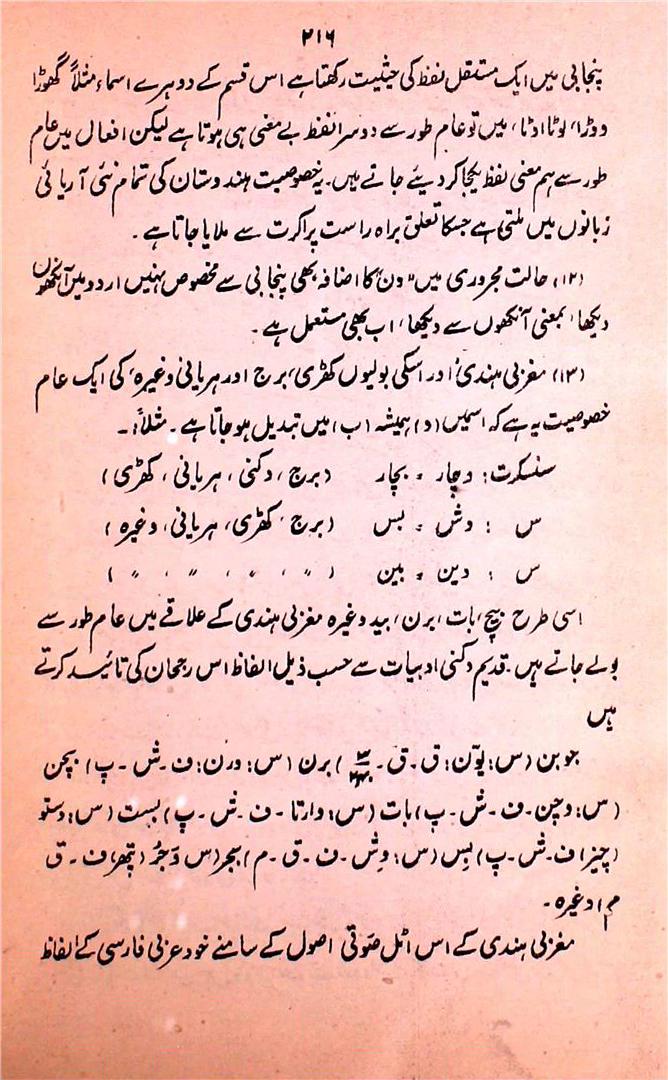 ۲۱۶
پنجابی میں ایک مستقل لفظ کی حیثیت رکھتا ہے اس قسم کے دوہرے اسماء مثلاً گھوڑا
ووڑا، لوٹا اوٹا، میں تو عام طور سے دوسرا لفظ بے معنی ہی ہوتا ہے لیکن افعال میں عام
طور سے ہم معنی لفظ یکجا کر دیئے جاتے ہیں۔ یہ خصوصیت ہندوستان کی تمام نئی آریائی
زبانوں میں ملتی ہے جسکا تعلق براہ راست پراکرت سے ملایا جاتا ہے۔
(۱۲) حالت مجروری میں "ون" کا اضافہ بھی پنجابی سے مخصوص نہیں اردو میں آنکھوں
دیکھا، بمعنی آنکھوں سے دیکھا، اب بھی مستعمل ہے۔
(۱۳) مغربی ہندی، اور اسکی بولیوں کھڑی، برج اور ہریانی وغیرہ، کی ایک عام
خصوصیت یہ ہے کہ اسمیں (و) ہمیشہ (ب) میں تبدیل ہو جاتا ہے۔ مثلاً:۔
سنسکرت: وچار = بچار (برج، دکنی، ہریانی، کھڑی)
س : وش = بس (برج، کھڑی، ہریانی، وغیرہ)
س : دین = بین ( " ، " ، " ، " )
اسی طرح بیچ، بات، برن، بید وغیرہ مغربی ہندی کے علاقے میں عام طور سے
بولے جاتے ہیں۔ قدیم دکنی ادبیات سے حسب ذیل الفاظ اس رجحان کی تائید کرتے
ہیں
جوبن (س: یوّن: ق۔ق۔ ) برن (س: ورن: ف۔ش۔پ) بچن
(س: وچن۔ف۔ش۔پ) بات (س: وارتا۔ف۔ش۔پ) بست (س: وستو
(چیز) ف۔ش۔پ) بِس (س: وِش۔ف۔ق۔م) بجر (س وَجرُ (پتھر) ف۔ق
م) وغیرہ۔
مغربی ہندی کے اس اٹل صَوتی اصول کے سامنے خود عربی فارسی کے الفاظ